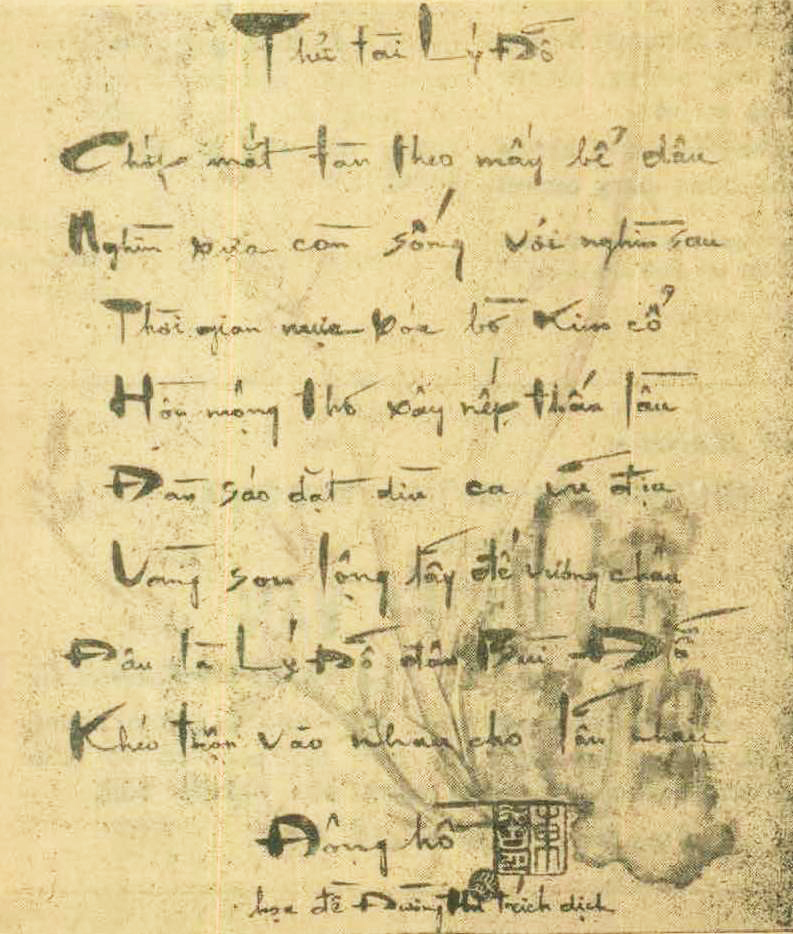 Thử tài Lý Đỗ
Chớp mắt tàn theo mấy bể dâu
Nghìn xưa còn sống với nghìn sau
Thời gian mưa xóa bờ Kim cổ
Hồn mộng thơ xây nếp lầu
Đàn sáo dặt dìu ca vũ địa
Vàng son lộng lẫy đế vương châu
Đâu là Lý Đỗ đâu Bùi Đỗ
Khéo trộn vào nhau cho lẫn nhau
Đông hồ
họa đề Đường thi trích dịch